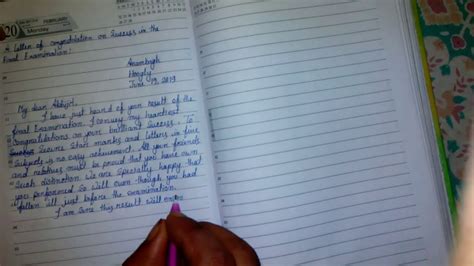 20
FEBRUARY
Monday
A Letter of congratulation on Success in the
Final Examination:
Arambagh
Hoogly
June 13, 2019
My dear Abhijit,
I have just heard of your result of the
final Examination. I convey my heartiest
congratulations on your brilliant success. To
secure Star marks and letters in five
Subjects is no easy achievement. All your friends
and relatives must be proud that you have won
such distinction. We are specially happy that
you performed so well even though you had
fallen ill just before the examination.
I am sure this result will en